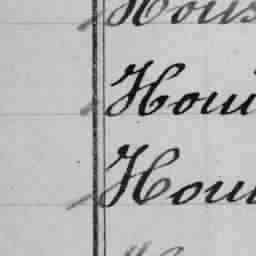 Hous
Houi
Hou